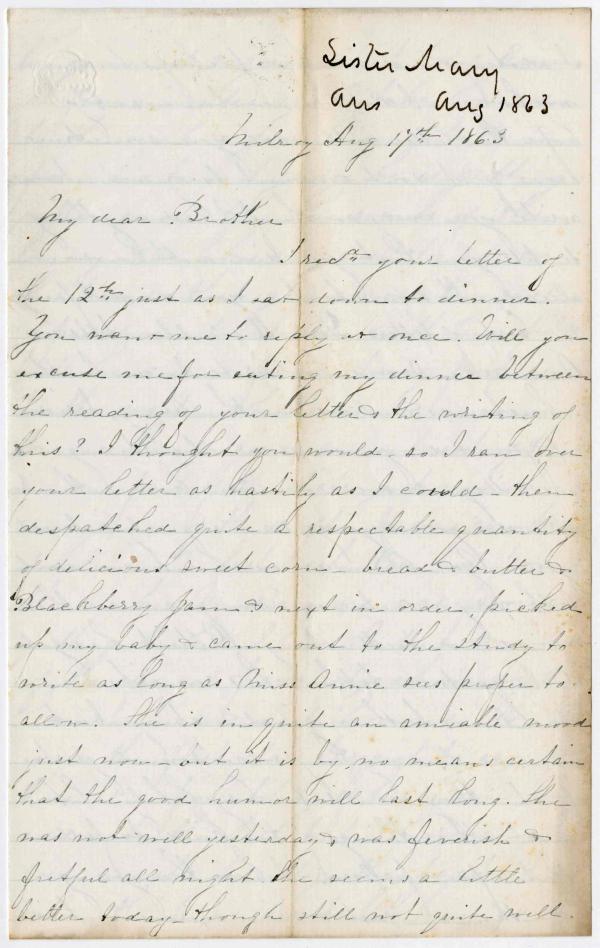 Sister Mary
Ans Aug 1863
Milroy Aug 17th 1863
My dear Brother
I recd your letter of
the 12th just as I sat down to dinner.
You want me to reply at once. Will you
excuse me for eating my dinner between
the reading of your letter & the writing of
this? I thought you would - so I ran over
your letter as hastily as I could - then
despatched quite a respectable quantity
of delicious sweet corn - bread & butter &
Blackberry Jam & next in order, picked
up my baby & came out to the study to
write as long as Miss Annie sees proper to
allow. She is in quite an amiable mood
just now - but it is by no means certain
that the good humor will last long. She
was not well yesterday & was feverish &
fretful all night. She seems a little
better today though still not quite well.